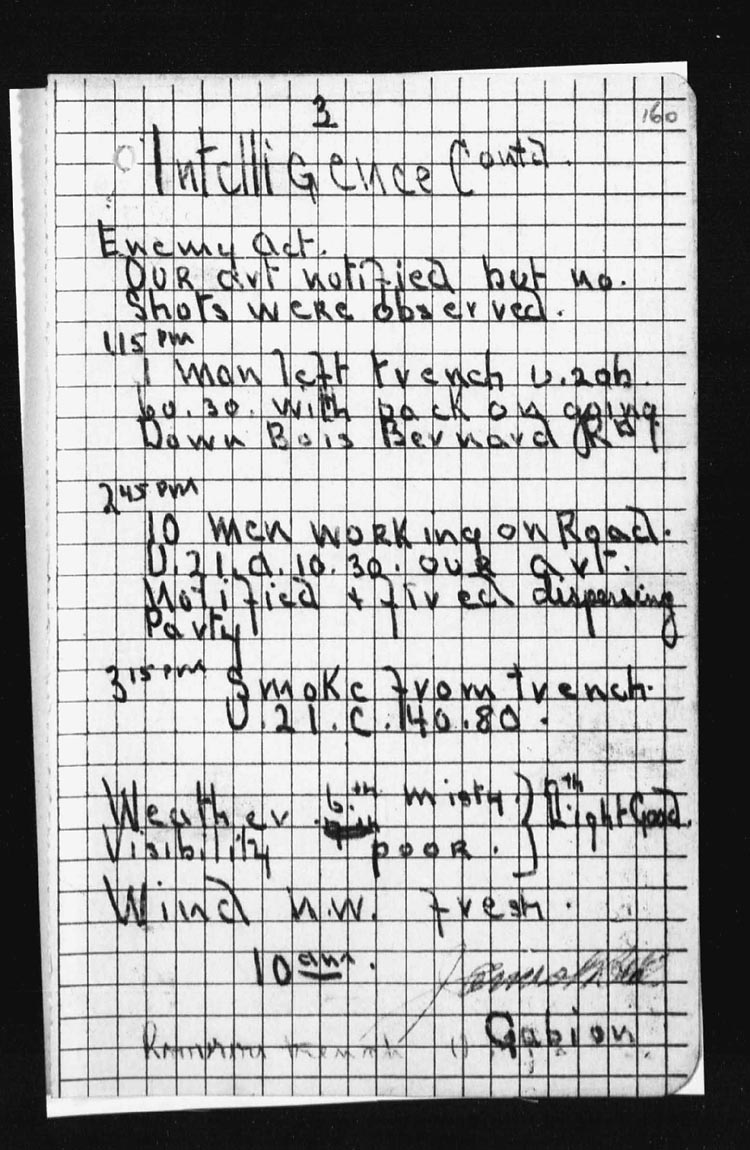 3
160
Intelligence Contd.
Enemy Act.
Our art notified but no.
Shots were observed.
1.15 pm
1 man left trench U.20b.
60.30. with pack on going
Down Bois Bernard Rd.
2 45 pm
10 men working on Road.
U.21.a.10.30. our art.
Notified & fired dispersing
Party
3 15 pm Smoke from trench.
U.21.C.40.80.
Weather 6th misty. } 7th
Visibility poor. } light Good.
Wind N.W. fresh.
10 am.
Gabion
trench